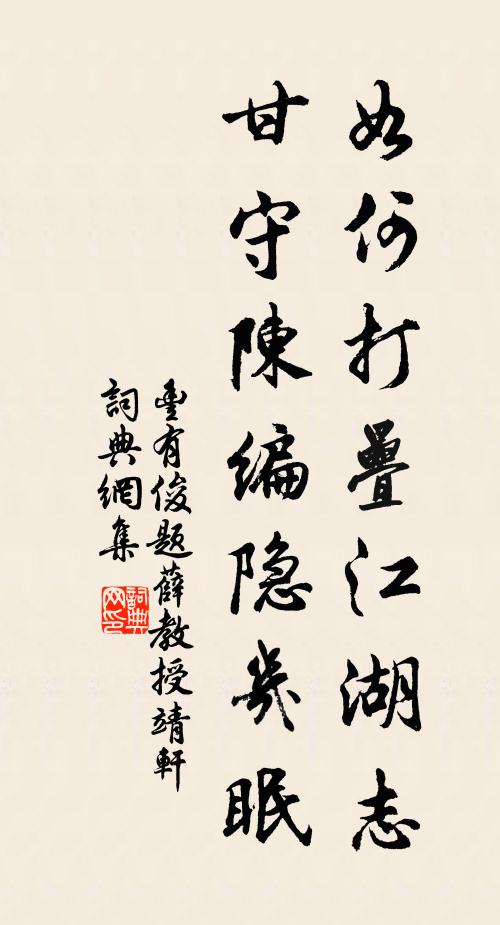 如何打疊江湖志
甘守陳編隐幾眠
豐有俊題薛教授靖軒
詞典網集
詞典网印